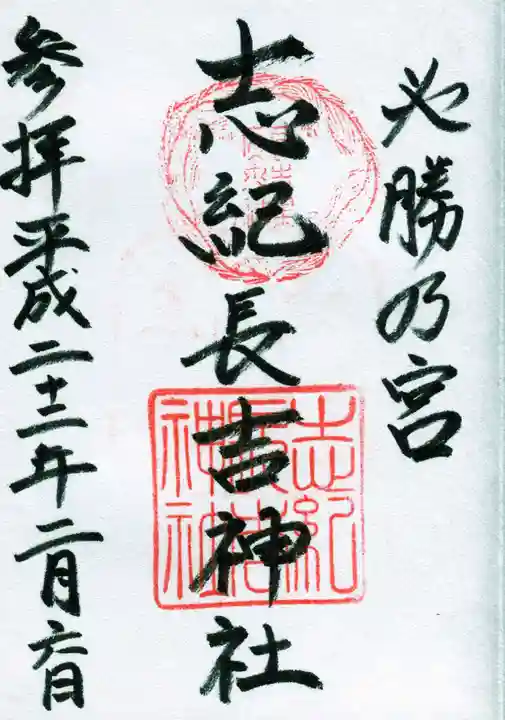 必勝乃宮
志紀長吉神社
志紀長吉神社
参拝平成二十三年二月六日